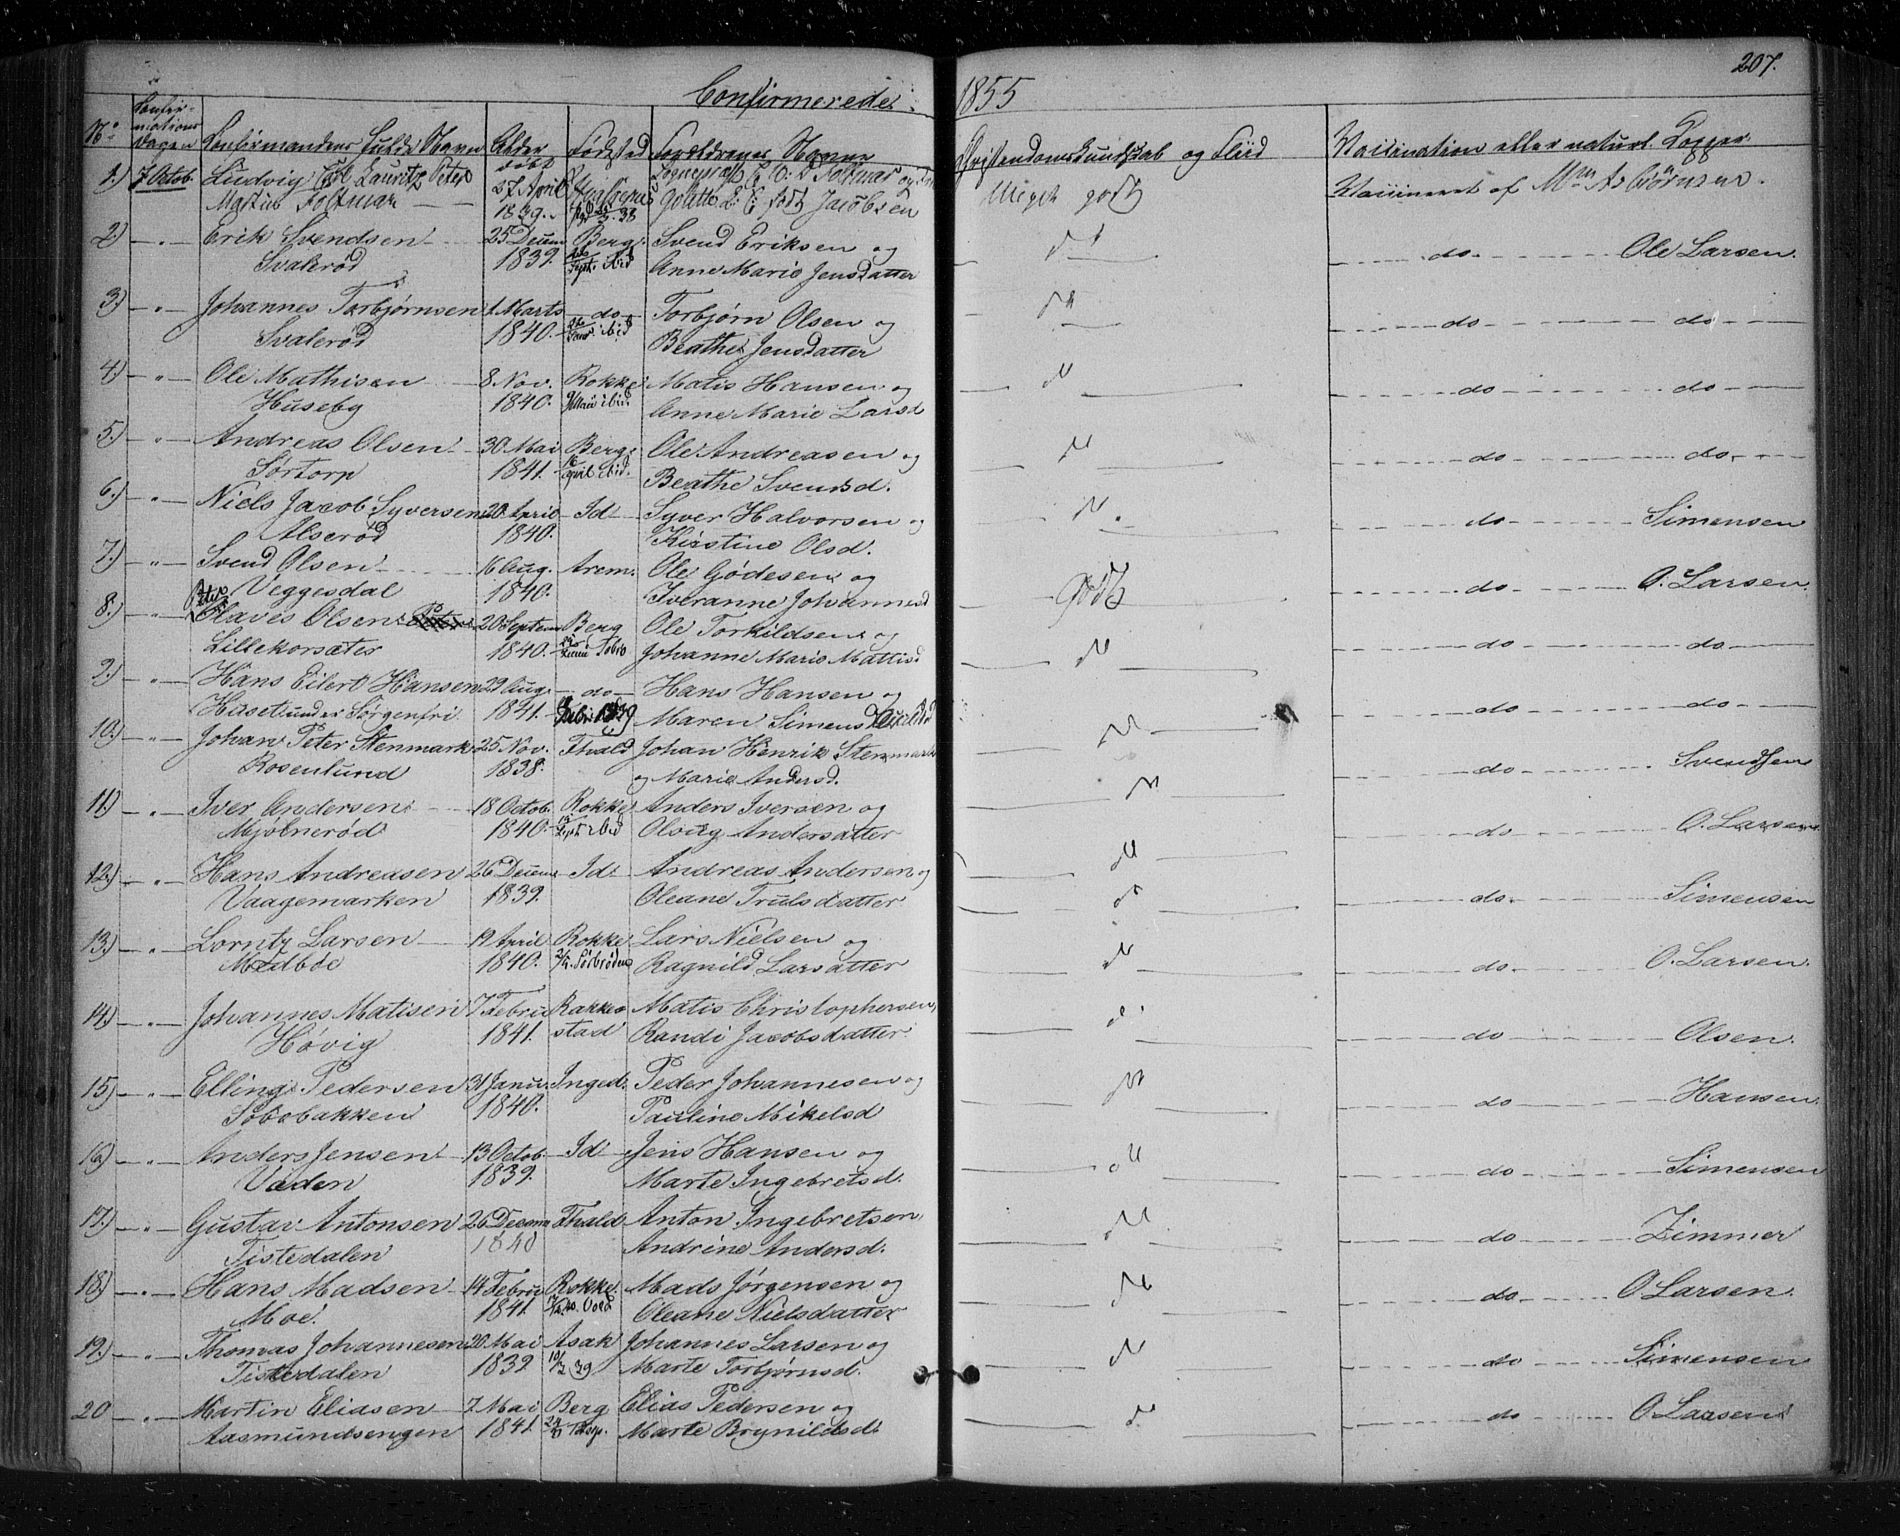 Confirmerede 1855
207.
No Confirmations dagen Confirmandens fulde Navn Alder født Fødested Forældrenes Navne Christendomskundskab og Fliid Vaccination eller naturl. Kopper
1.) 7 Octob. Ludvig Lauritz Peter 27 April og Meget godt Vaccineret af
Marius Foltmar 1839. Golette født Jacobsen
2.) " Erik Svendsen 25 Decem Berg Svend Eriksen og do Ole Larsen.
Svalerød 1839. ibid Anne Marie Jensdatter
3.) " Johannes Torbjørnsen 1 Marts do Torbjørn Olsen og do do
Svalerød 1840. ibid Beathe Jensdatter
4.) " Ole Mathisen 8 Nov. Rokke Matis Hansen og do do
Huseby 1840. ibid. Anne Marie Larsd
5.) " Andreas Olsen 30 Mai Berg Ole Andreasen og do do
Sørtorp 1841. April ibid. Beathe Svendsd.
6.) " Niels Jacob Syversen 20 April Id Syver Halvorsen og do Simensen
Alserød 1840. Kirstine Olsd.
7.) " Svend Olsen 16 Aug. Arem. Ole Gødesen og godt do O. Larsen
Veggesdal 1840. Iveranne Johannesd
8.) " Olaves Olsen 20 Septem Berg Ole Torkildsen og do do
Lillekorsæter 1840. Johanne Marie Mattisd
9.) " Hans Eilert Hansen 29 Aug. do Hans Hansen og do do
Huset under Sørgenfri 1841. Maren Simensd
10.) " Johan Peter Stenmark 25 Nov. Fhald Johan Henrik Stenmark do Svendsen
Rosenlund 1838. og Marie Andersd.
11.) " Iver Andersen 18 Octob. Rokke Anders Iversen og do O. Larsen
Mjølnerød 1840. Sept ibid Olaug Andersatter
12.) " Hans Andreasen 26 Decem Id Andreas Andersen og do Simensen
Vaagemarken 1839. Oleane Trulsdatter
13.) " Lorntz Larsen 19 April Rokke Lars Nielsen og do O. Larsen.
Medboe 1840. Ragnild Larsatter
14.) " Johannes Matisen 7 Febru Rakke Matis Christophersen do Olsen.
Høvig 1841. stad Randi Jacobsdatter
15.) " Elling Pedersen 31 Janu. Inged. Peder Johannesen og do Hansen
Sobobakken 1840. Pauline Mikelsd
16.) " Anders Jensen 13 Octob Id Jens Hansen og do Simensen
Væden 1839. Marte Ingebretsd.
17.) " Gustav Antonsen 26 Decem Fhald Anton Ingebretsen do Zimmer
Tistedalen 1840 Andrine Andersd.
18.) " Hans Madsen 14 Febru Rokke Mads Jørgensen og do O Larsen.
Moe. 1841. Oleane Nielsdatter
19.) " Thomas Johannesen 20 Mai Asak Johannes Larsen og do Simensen
Tistedalen 1839 Marte Torbjørnsd.
20 " Martin Eliasen 7 Mai Berg Elias Pedersen og do O. Larsen
Aasmundsengen 1841. Marte Brynildsd.